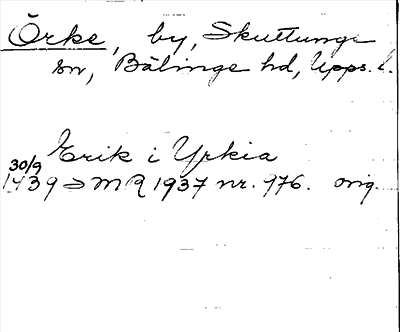 Örke, by, Skuttunge
sn, Bälinge hd, Upps. l.
Erik i Yrkia
30/9
1439 MR 1937 nr. 976. orig.